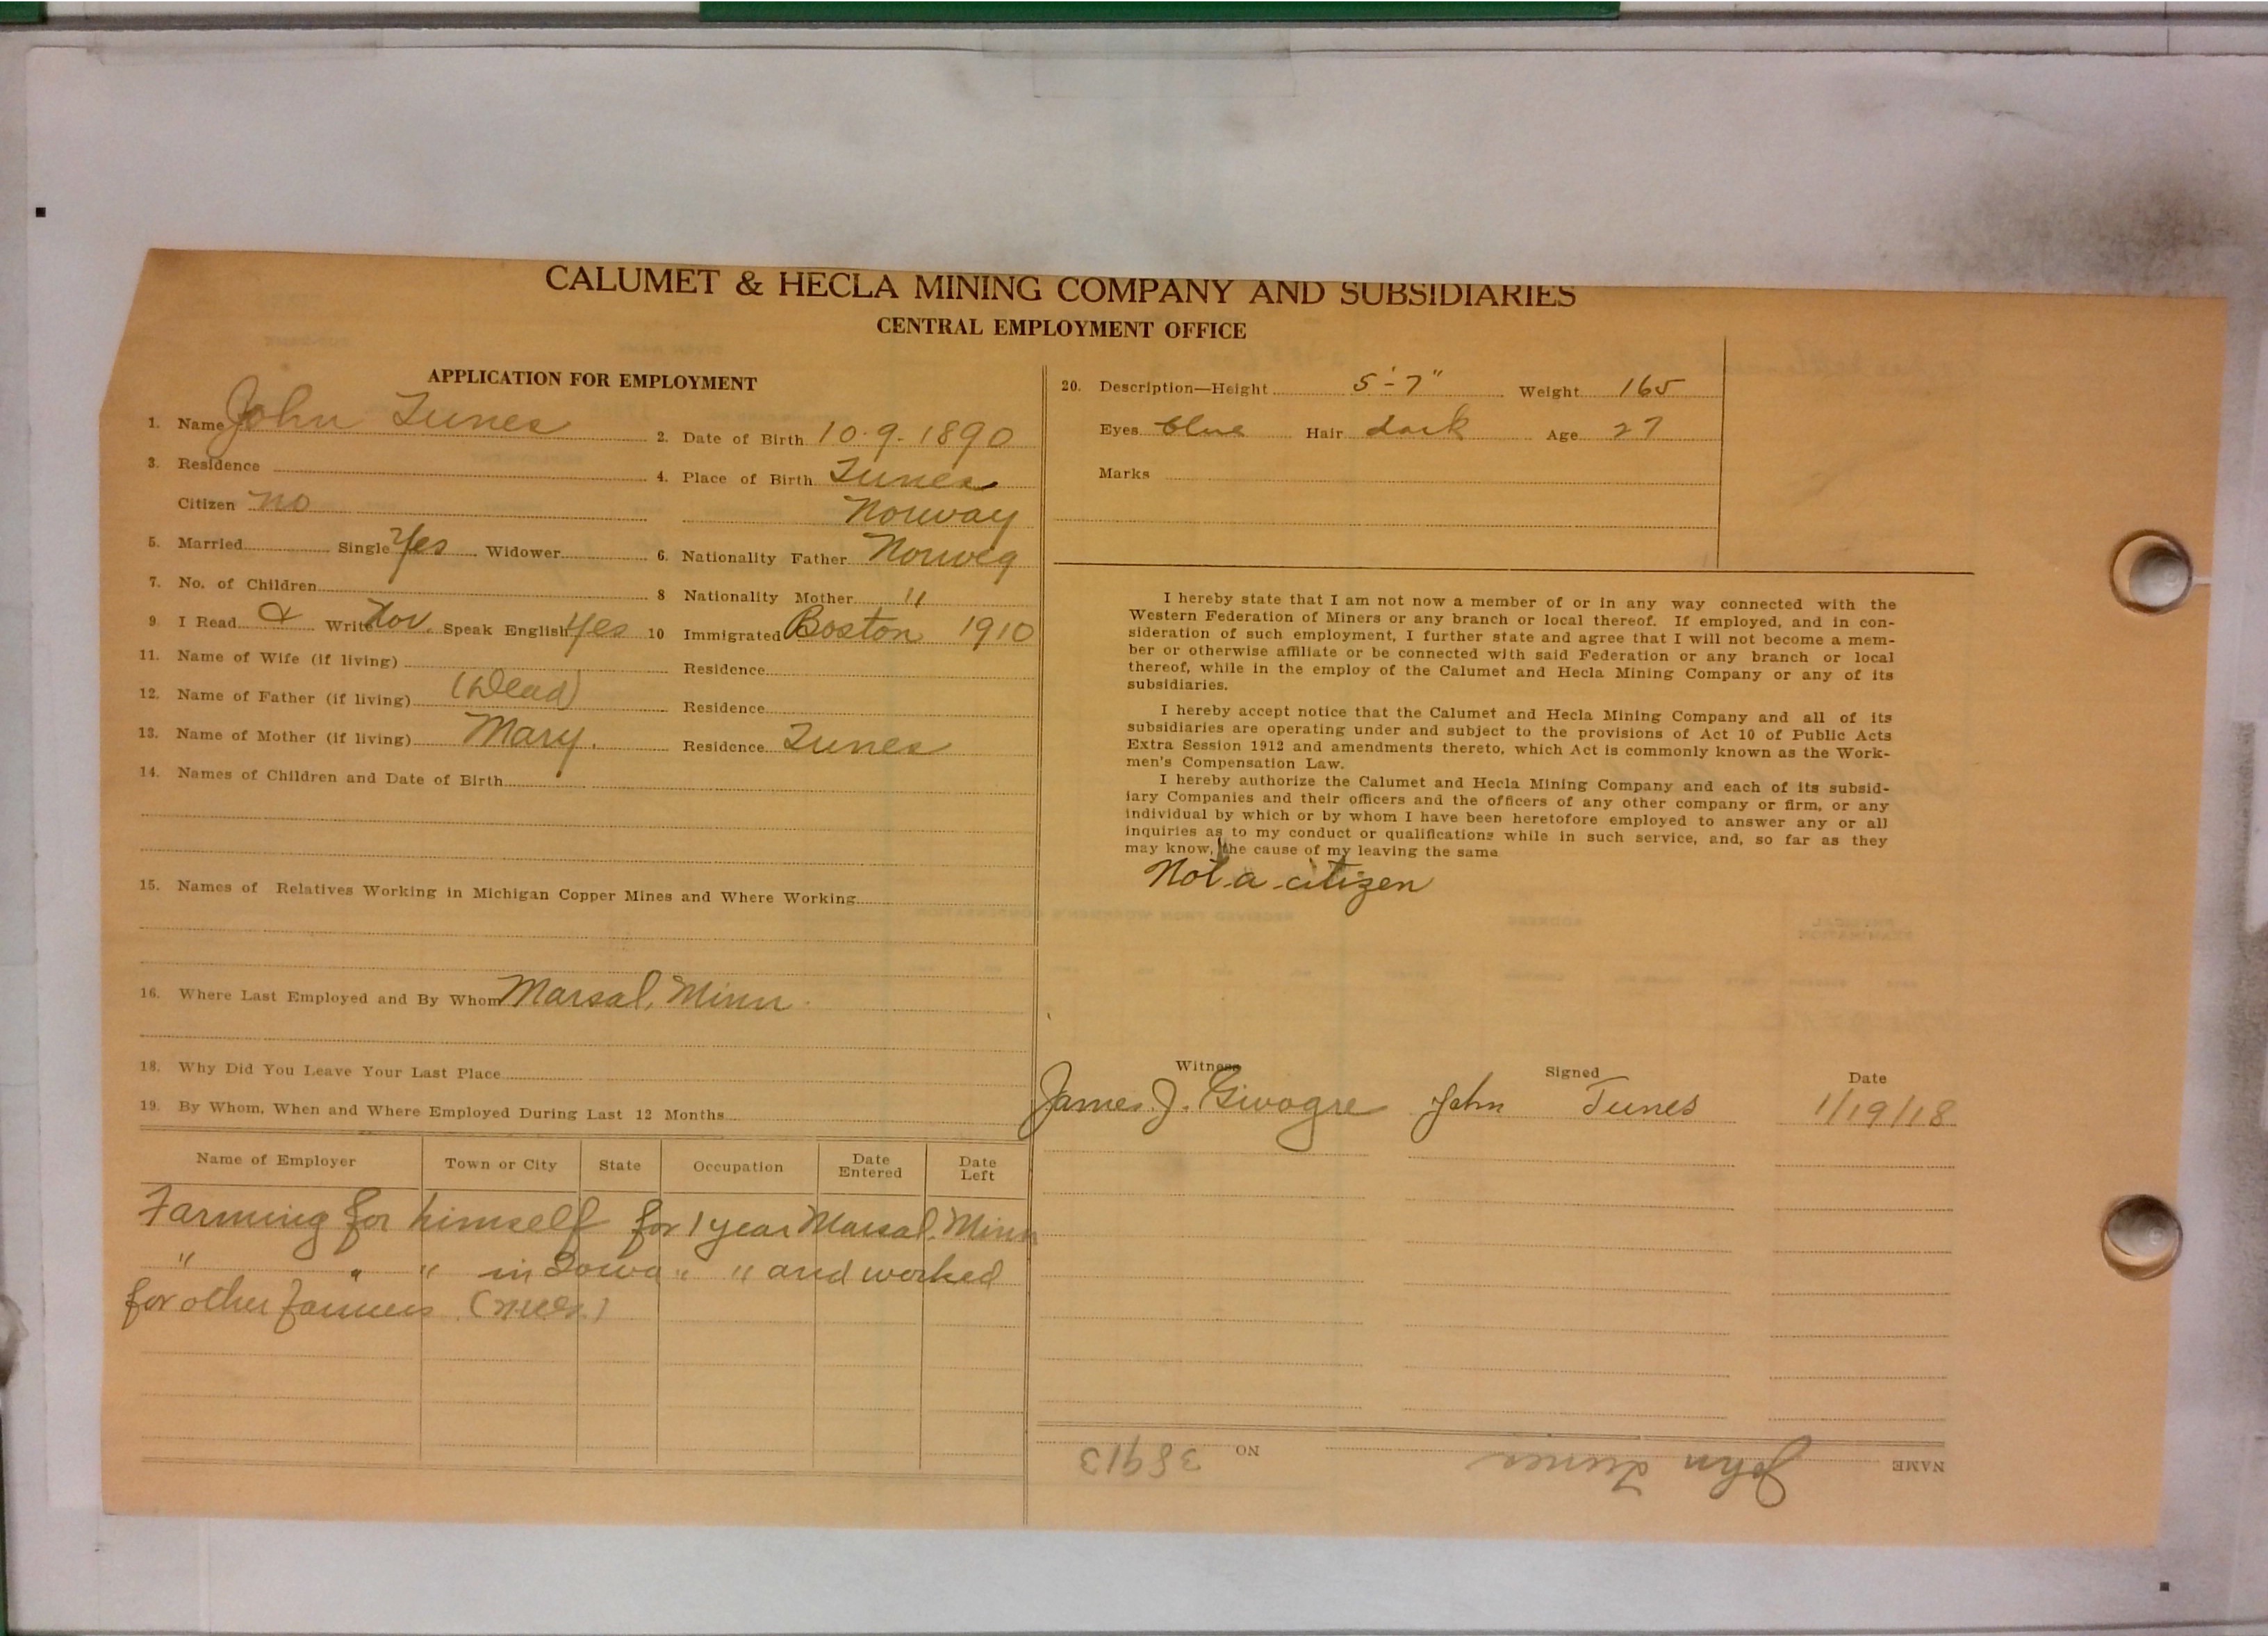 CALUMET & HECLA MINING COMPANY AND SUBSIDIARIES
CENTRAL EMPLOYMENT OFFICE
APPLICATION FOR EMPLOYMENT
1. Name John Tunes
2. Date of Birth 10-9-1890
3. Residence
4. Place of Birth Tunes
Citizen no
Norway
5. Married Single Yes Widower
6. Nationality Father Norweg
7. No. of Children
8 Nationality Mother "
9 I Read & Write Nor. Speak English Yes
10 Immigrated Boston 1910
11. Name of Wife (if living)
Residence
12. Name of Father (if living) (Dead)
Residence
13. Name of Mother (if living) Mary.
Residence Tunes
14. Names of Children and Date of Birth
15. Names of Relatives Working in Michigan Copper Mines and Where Working
16. Where Last Employed and By Whom Marsal, Minn.
18. Why Did You Leave Your Last Place
19. By Whom, When and Where Employed During Last 12 Months
Name of Employer Town or City State Occupation Date Entered Date Left
Farming for himself for 1 year Marsal, Minn
" " " in Iowa " " and worked
for other farmers
20. Description—Height 5'-7" Weight 165
Eyes blue Hair dark Age 27
Marks
I hereby state that I am not now a member of or in any way connected with the
Western Federation of Miners or any branch or local thereof. If employed, and in con-
sideration of such employment, I further state and agree that I will not become a mem-
ber or otherwise affiliate or be connected with said Federation or any branch or local
thereof, while in the employ of the Calumet and Hecla Mining Company or any of its
subsidiaries.
I hereby accept notice that the Calumet and Hecla Mining Company and all of its
subsidiaries are operating under and subject to the provisions of Act 10 of Public Acts
Extra Session 1912 and amendments thereto, which Act is commonly known as the Work-
men's Compensation Law.
I hereby authorize the Calumet and Hecla Mining Company and each of its subsid-
iary Companies and their officers and the officers of any other company or firm, or any
individual by which or by whom I have been heretofore employed to answer any or all
inquiries as to my conduct or qualifications while in such service, and, so far as they
may know, the cause of my leaving the same
Not a citizen
Witness Signed Date
James J. Givogre John Tunes 1/19/18
NAME John Tunes NO 38913